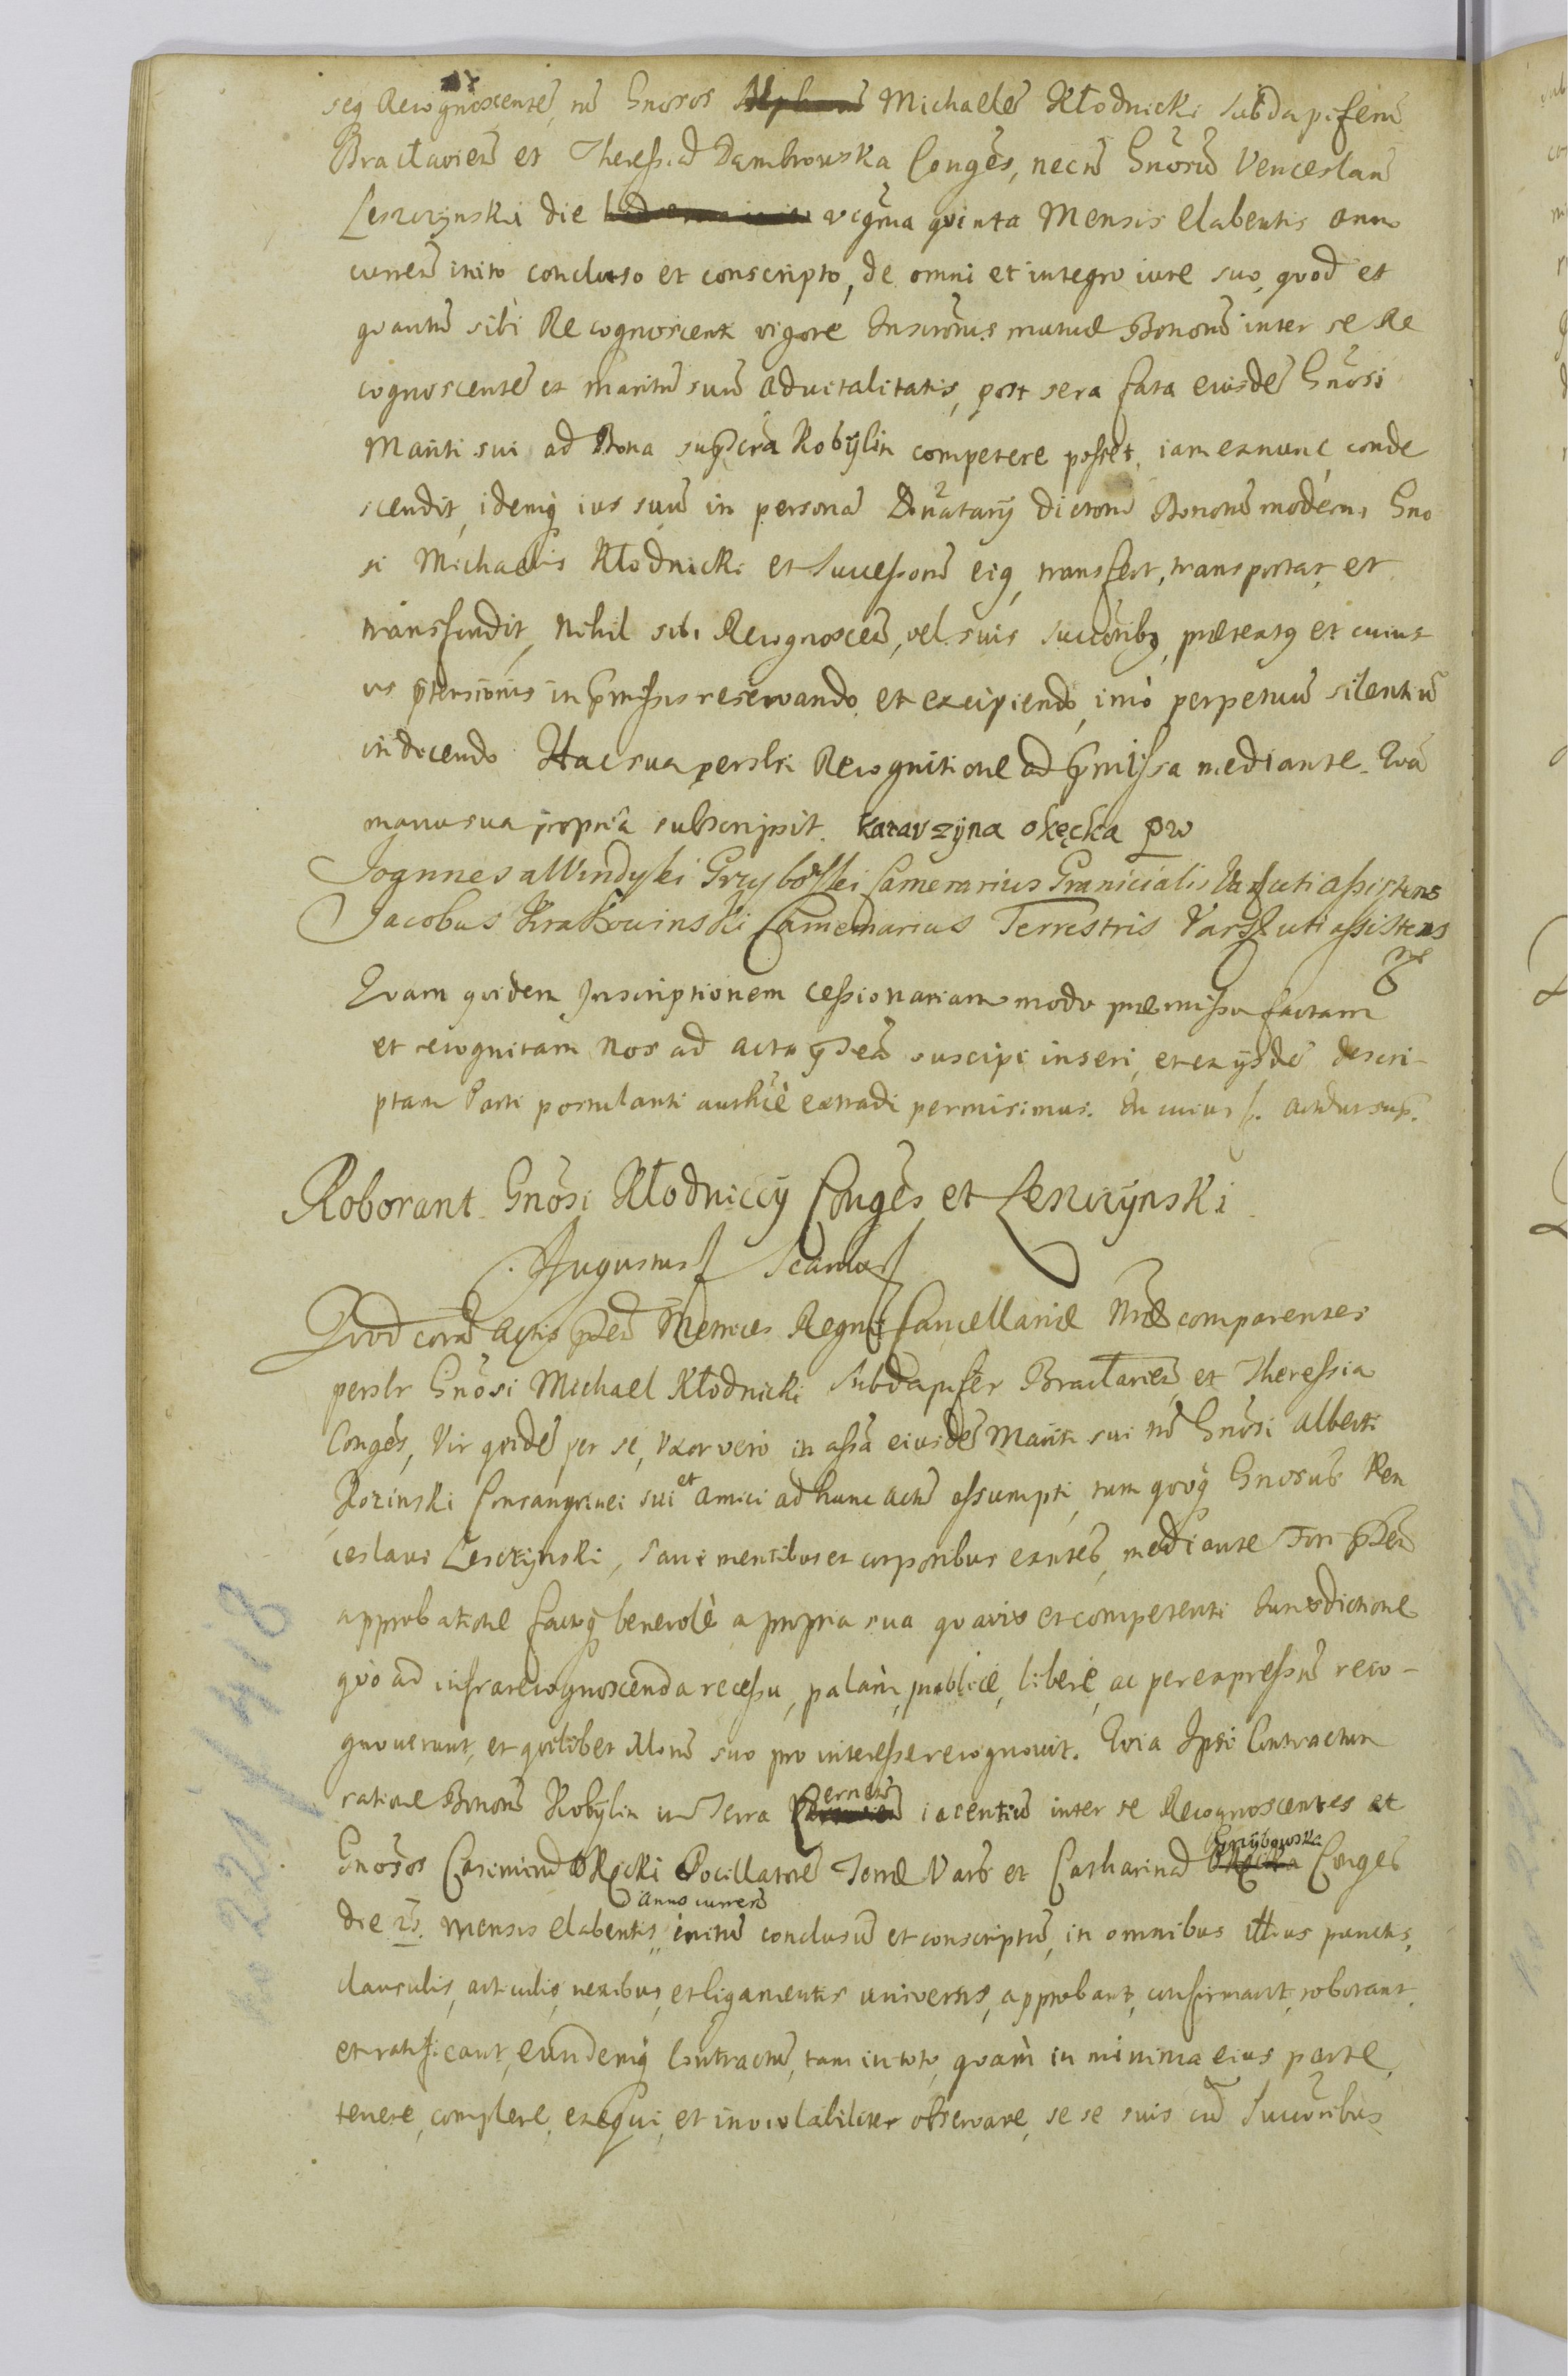 seq Recognoscentē, nō Gnosos Michaelē Kłodnicki Subdapiferū
Bractavieñ et Theressiā Dambrowska Conges, necnō Gnōsū Venceslaū
Leszczynski die vigīma quinta Mensis elabentis anno
curreñ inito concluso et conscripto, de omni et integro iure suo, quod et
quantū sibi Recognoscenti vigore Inscrōnis mutuæ Bonorū inter se Re
cognoscentē et maritū suū advitalitatis, post sera fata eiusdē Gnōsi
Mariti sui ad Bona supscra Kobylin competere posset, iam exnunc conde
scendit, idemq ius suū in personā Donatarÿ dictorū Bonorū moderni Gno
si Michaelis Kłodnicki et Successorū eiq transfert, transportat et
transfundit, Nihil sibi Recognosceñ, vel suis Succōribq, prætextq et cuius
vs ptensionis in pmissis reservando et excipiendo, imò perpetuū silentiū
indocendo Hac sua perslsi Recognitione ad pmissa mediante. Qvā
manu sua propriā subscripsit. Katarzyna okęcka pw
Joannes a Windyki Grzybowski Camerarius Granicialis Vars uti assistens
Jacobus Krakowinski Camerarius Terrestris Vars uti assistens
Qvam quidem Inscriptionem cessionariam modo præmisso factam
et recognitam Nos ad acta pñteā suscipi inseri, et ex ijsdē descri-
ptam Parti postulanti authcè extradi permisimus. In cuius f. Actū ut sup.
Roborant Gnōsi Kłodniccÿ Congēs et Leszczÿnski
Augustus f Scdus f
Qvod corā Actis pñteā Metrices Regni Cancellariæ Nræ comparentes
perslr Gnōsi Michael Kłodnicki Subdapifer Bractavieñ et Theressia
Congēs, Vir quidē per se, Uxor vero in assā eiusdē Mariti sui nō Gnōsi Alberti
Rozinski Consanguinei sui et amici ad hunc actū assumpti, tum quoq Gnosus Ven
ceslaus Leszczynski, sani mentibus et corporibus exñtes, mediante Fori pñteā
approbatione factoq benevolè a propria sua quavis et competenti Iurisdictione
quo ad infrarecognoscenda recessu, palàm, publicè, liberè, ac per expressū reco-
gnoverunt, et quilibet illorū suo pro interesse recognovit. Qvia Ipsi Contractum
ratione Bonorū Kobylin in Terra Cerneñ iacentiū inter se Recognoscentes et
Gnōsos Casimirū Okęcki Pocillatorē Terræ Vars et Catharinā Grzybowska Conges
die 25. mensis elabentis anno curreñ initū conclusū et conscriptū, in omnibus illius punctis,
clausulis, articulis, nexibus, et ligamentis universis, approbant, confirmant, roborant
et ratificant, eundemq Contractū, tam in toto, quàm in minima eius parte,
tenere, complere, exequi, et inviolabiliter observare, se se suis cū Succōribus